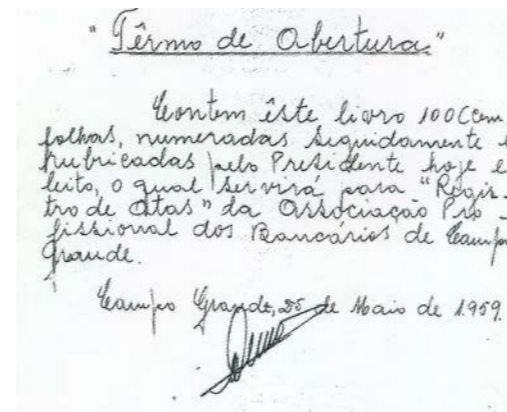 "Têrmo de Abertura"
Contem êste livro 100 (cem
folhas, numeradas seguidamente
rubricadas pelo Presidente hoje e
leito, o qual servirá para "Regis-
tro de Atas" da Associação Pro-
fissional dos Bancários de Campo
Grande.
Campo Grande, 25 de Maio de 1.959.